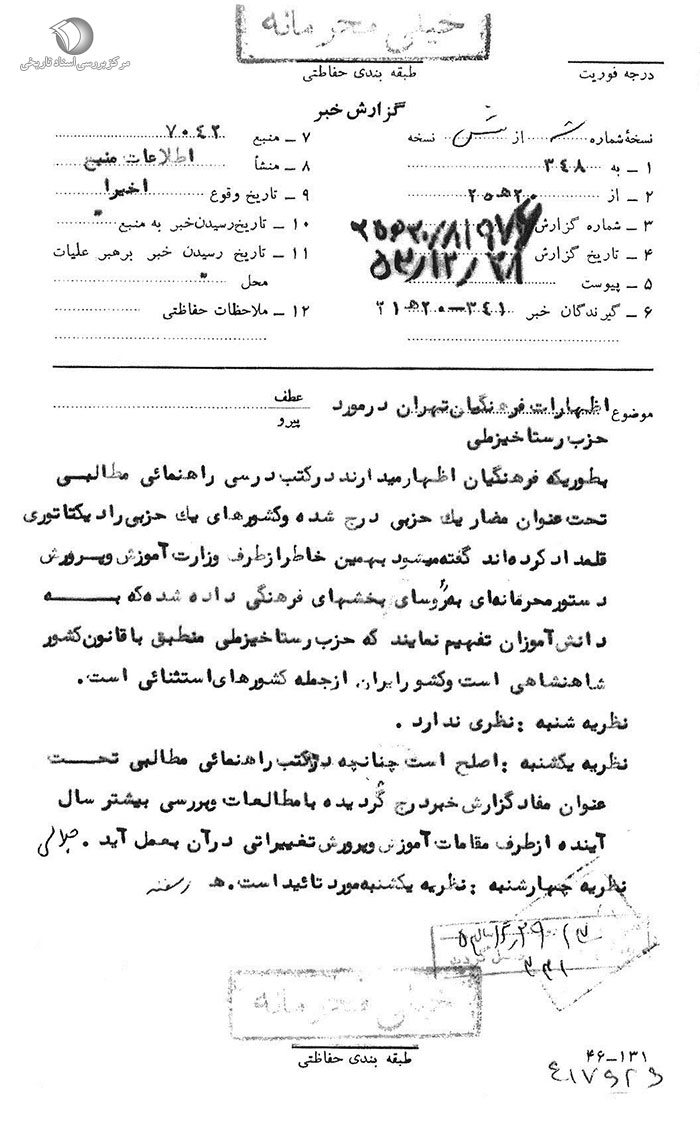 خیلی محرمانه
مرکز بررسی اسناد تاریخی
درجه فوریت
طبقه بندی حفاظتی
گزارش خبر
نسخهٔ شماره از نسخه
۱ ـ به ۳۴۸
۲ ـ از ۲۰ھ۲۵
۳ ـ شماره گزارش
۴ ـ تاریخ گزارش ۵۳/۱۲/۲۸
۵ ـ پیوست
۶ ـ گیرندگان خبر ۳۴۱ـ۲۰ھ۲۱
۷ ـ منبع ۷۰۴۲
۸ ـ منشأ اطلاعات منبع
۹ ـ تاریخ وقوع اخیرا
۱۰ ـ تاریخ رسیدن خبر به منبع "
۱۱ ـ تاریخ رسیدن خبر برهبر عملیات
محل "
۱۲ ـ ملاحظات حفاظتی
موضوع اظهارات فرهنگیان تهران درمورد
حزب رستاخیزملی
عطف
پیرو
بطوریکه فرهنگیان اظهارمیدارند درکتب درسی راهنمائی مطالبی
تحت عنوان مضار یك حزبی درج شده وکشورهای یك حزبی رادیکتاتوری
قلمداد کرده‌اند گفته میشود بهمین خاطر ازطرف وزارت آموزش وپرورش
دستورمحرمانه‌ای به رؤسای بخشهای فرهنگی داده شده که به
دانش آموزان تفهیم نمایند که حزب رستاخیزملی منطبق با قانون کشور
شاهنشاهی است وکشو رایران ازجمله کشورهای استثنائی است.
نظریه شنبه : نظری ندارد .
نظریه یکشنبه : اصلح است چنانچه درکتب راهنمائی مطالبی تحت
عنوان مفاد گزارش خبر درج گردیده با مطالعات وبررسی بیشتر سال
آینده ازطرف مقامات آموزش وپرورش تغییراتی درآن بعمل آید . جلالی
نظریه چهارشنبه : نظریه یکشنبه مورد تائید است. ھ
۳۴۱
خیلی محرمانه
طبقه بندی حفاظتی
۴۶–۱۳۱